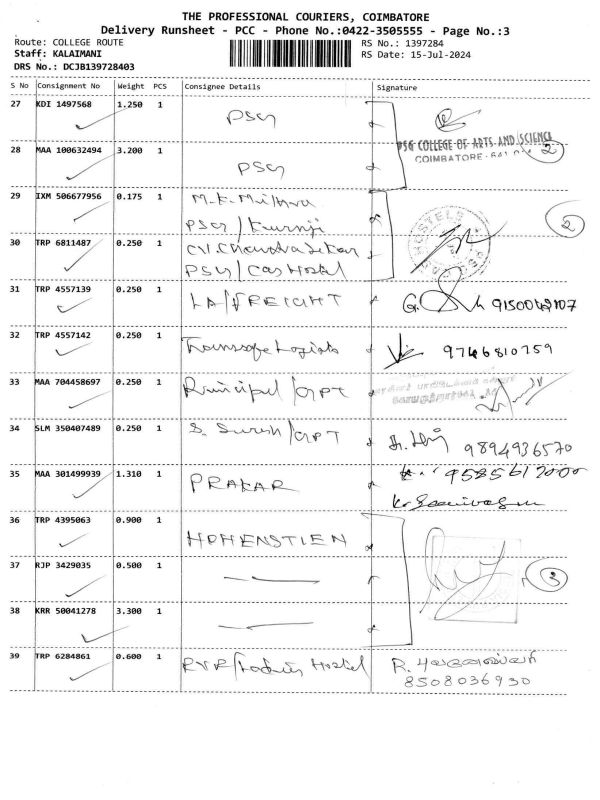 THE PROFESSIONAL COURIERS, COIMBATORE
Delivery Runsheet - PCC - Phone No.:0422-3505555 - Page No.:3
Route: COLLEGE ROUTE
RS No.: 1397284
Staff: KALAIMANI
RS Date: 15-Jul-2024
DRS No.: DCJB139728403
S No Consignment No Weight PCS Consignee Details Signature
27 KDI 1497568 1.250 1 PSG
PSG COLLEGE OF ARTS AND SCIENCE
COIMBATORE - 641
28 MAA 100632494 3.200 1 PSG 2
29 IXM 506677956 0.175 1 M.K.
PSG / 2
30 TRP 6811487 0.250 1
PSG / Cas Hostel
31 TRP 4557139 0.250 1 LA/FREIGHT G.
32 TRP 4557142 0.250 1 9746810759
33 MAA 704458697 0.250 1 /GPT
34 SLM 350407489 0.250 1 S. Suresh/GPT 9894936570
35 MAA 301499939 1.310 1 PRAKAR
36 TRP 4395063 0.900 1 HOHENSTIEN
37 RJP 3429035 0.500 1 3
38 KRR 50041278 3.300 1
39 TRP 6284861 0.600 1 Hostel R.
8508036930